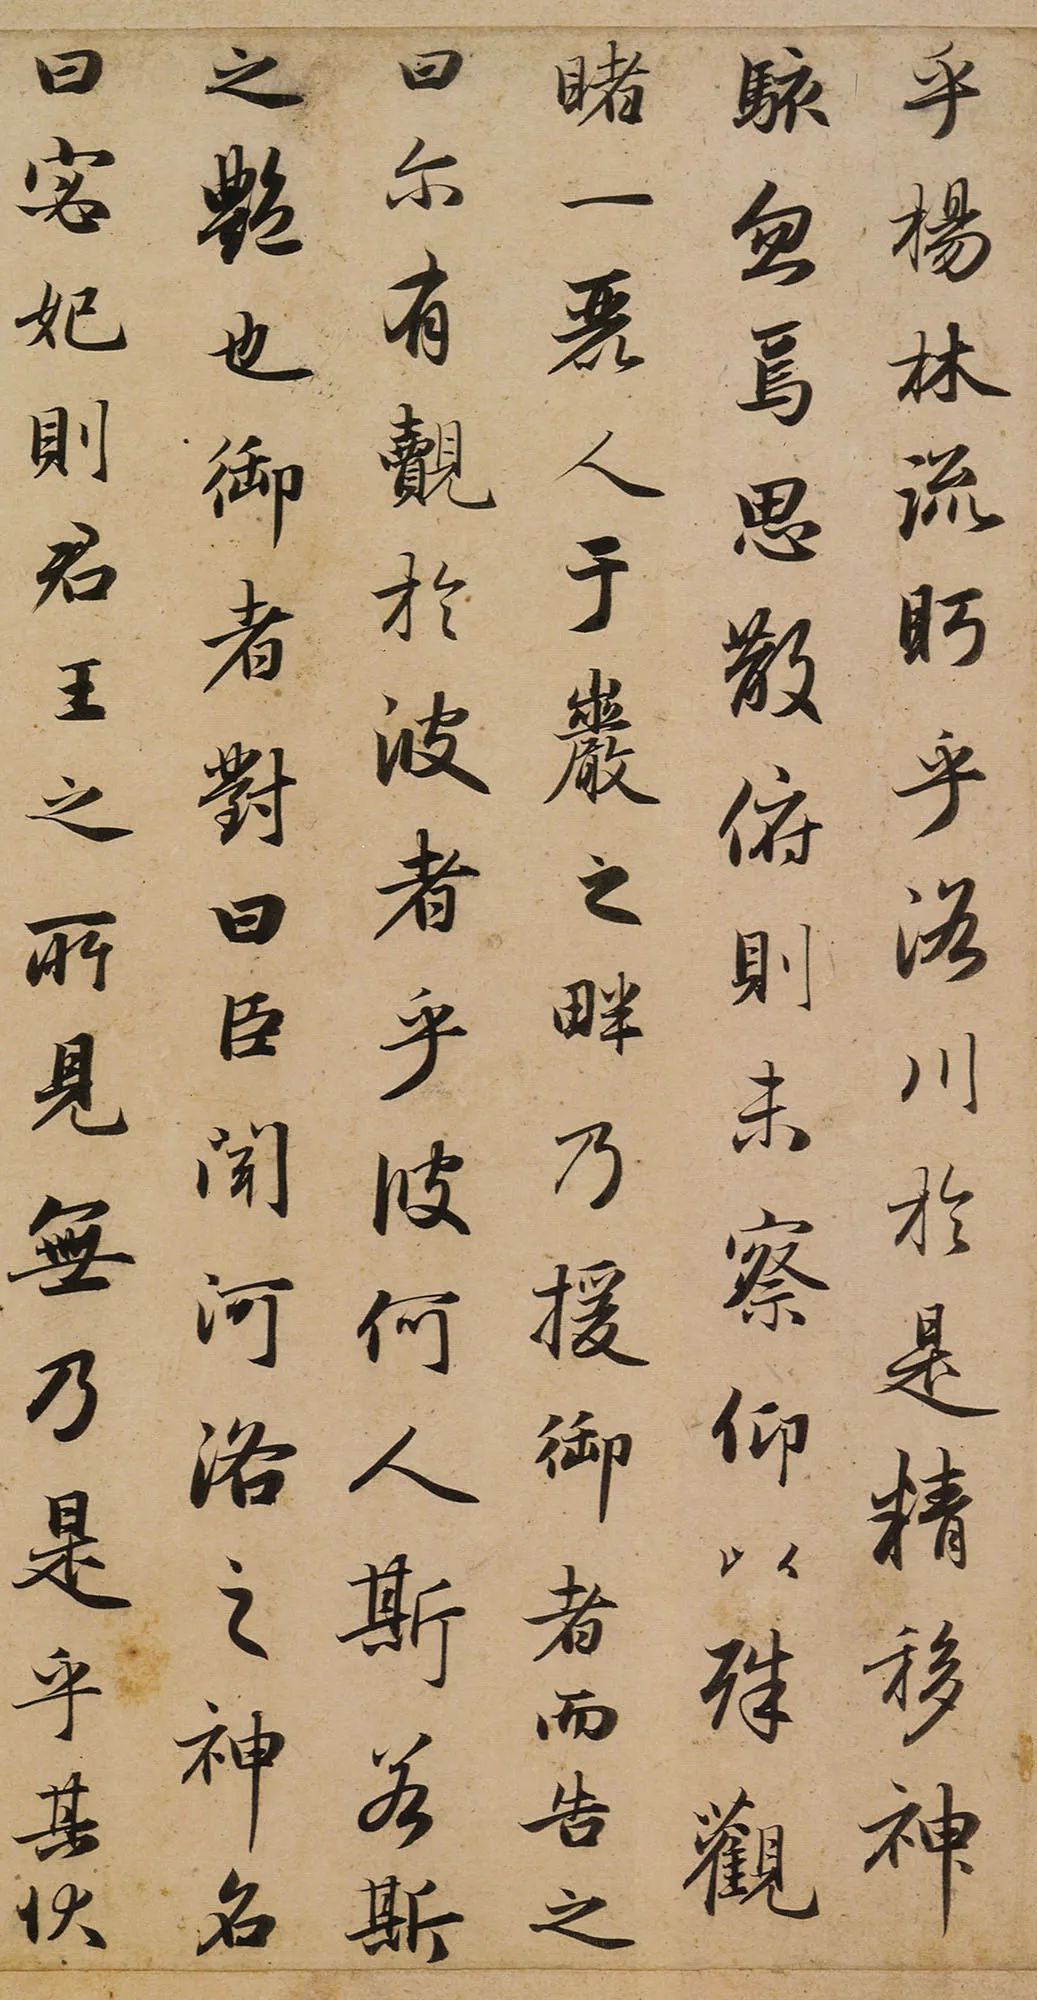 乎楊林流眄乎洛川於是精移神
駭忽焉思散俯則未察仰以殊觀
睹一麗人于巖之畔乃援御者而告之
曰尒有覿於彼者乎彼何人斯若斯
之艷也御者對曰臣聞河洛之神名
曰宓妃則君王之所見無乃是乎其狀